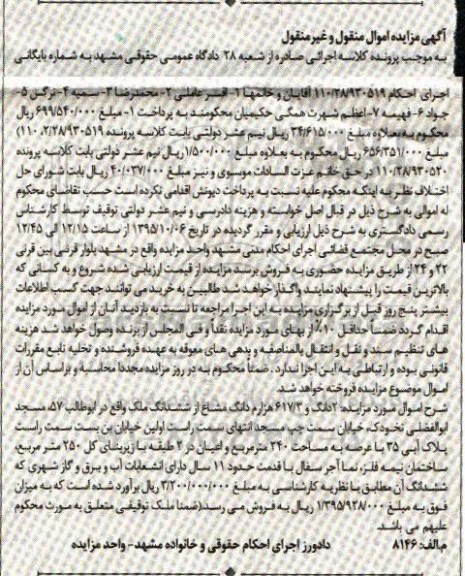 آگهی مزایده اموال منقول و غیرمنقول
به موجب پرونده کلاسه اجرائی صادره از شعبه ۲۸ دادگاه عمومی حقوقی مشهد به شماره بایگانی
اجرای احکام ۱۱۰/۲۸/۹۳۰۵۱۹ آقایان و خانمها ۱- افسر عاملی ۲- محمدرضا ۳- سمیه ۴- نرگس ۵-
جواد ۶- فهیمه ۷- اعظم شهرت همگی حکیمیان محکومند به پرداخت ۱- مبلغ ۶۹۹/۵۴۰/۰۰۰ ریال
محکوم به بعلاوه مبلغ ۳۴/۶۱۵/۰۰۰ ریال نیم عشر دولتی بابت کلاسه پرونده ۱۱۰/۲۸/۹۳۰۵۱۹ ۲)
مبلغ ۶۵۶/۳۵۱/۰۰۰ ریال محکوم به بعلاوه مبلغ ۱/۵۰۰/۰۰۰ ریال نیم عشر دولتی بابت کلاسه پرونده
۱۱۰/۲۸/۹۳۰۵۲۰ در حق خانم عزت السادات موسوی و نیز مبلغ ۴۰/۰۳۷/۰۰۰ ریال بابت شورای حل
اختلاف نظر به اینکه محکوم علیه نسبت به پرداخت دیونش اقدامی نکرده است حسب تقاضای محکوم
له اموالی به شرح ذیل در قبال اصل خواسته و هزینه دادرسی و نیم عشر دولتی توقیف توسط کارشناس
رسمی دادگستری به شرح ذیل ارزیابی و مقرر گردیده در تاریخ ۱۳۹۵/۱۰/۰۶ از ساعت ۱۲/۱۵ الی ۱۲/۴۵
صبح در محل مجتمع قضائی اجرای احکام مدنی مشهد واحد مزایده واقع در مشهد بلوار قرنی بین قرنی
۲۲ و ۲۴ از طریق مزایده حضوری به فروش برسد مزایده از قیمت ارزیابی شده شروع و به کسانی که
بالاترین قیمت را پیشنهاد نمایند واگذار خواهد شد طالبین به خرید می توانند جهت کسب اطلاعات
بیشتر پنج روز قبل از برگزاری مزایده به این اجرا مراجعه تا نسبت به بازدید آنان از اموال مورد مزایده
اقدام گردد ضمناً حداقل ۱۰٪ از بهای مورد مزایده نقداً و فی المجلس از برنده وصول خواهد شد هزینه
های تنظیم سند و نقل و انتقال بالمناصفه و بدهی های معوقه به عهده فروشنده و تخلیه تابع مقررات
قانونی بوده و ارتباطی به این اجرا ندارد. ضمناً محکوم به در روز مزایده مجدداً محاسبه و براساس آن از
اموال موضوع مزایده فروخته خواهد شد.
شرح اموال مورد مزایده: ۲دانگ و ۶۱۷/۳ هزارم دانگ مشاع از ششدانگ ملک واقع در ابوطالب ۵۷، مسجد
ابوالفضلی نخودک، خیابان سمت چپ مسجد انتهای سمت راست اولین خیابان بن بست سمت راست
پلاک آبی ۳۵ با عرصه به مساحت ۳۴۰ مترمربع و اعیان در ۲ طبقه با زیربنای کل ۲۵۰ متر مربع،
ساختمان نیمه فلز، نما آجر سفال با قدمت حدود ۱۱ سال دارای انشعابات آب و برق و گاز شهری که
ششدانگ آن مطابق با نظریه کارشناسی به مبلغ ۳/۲۰۰/۰۰۰/۰۰۰ ریال برآورد شده است که به میزان
فوق به مبلغ ۱/۳۹۵/۹۲۸/۰۰۰ ریال به فروش می رسد(ضمناً ملک توقیفی متعلق به مورث محکوم
علیهم می باشد.
م.الف: ۸۱۴۶ دادورز اجرای احکام حقوقی و خانواده مشهد- واحد مزایده